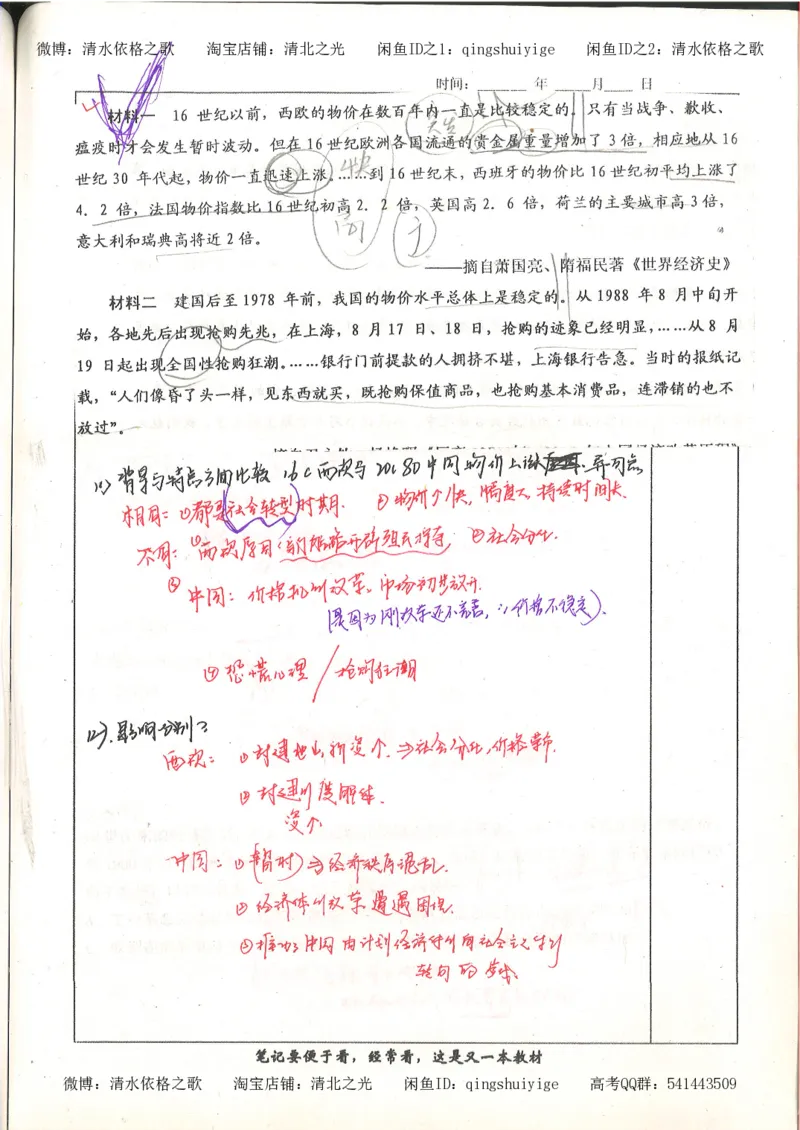 微博：清水依格之歌 淘宝店铺：清北之光 闲鱼ID之1：qingshuiyige 闲鱼ID之2：清水依格之歌
时间： 年 月 日
材料一 16 世纪以前，西欧的物价在数百年内一直是比较稳定的。只有当战争、歉收、
瘟疫时才会发生暂时波动。但在16世纪欧洲各国流通的贵金属重量增加了3倍，相应地从16
世纪30 年代起，物价一直迅速上涨。……到16世纪末，西班牙的物价比16世纪初平均上涨了
4．2 倍，法国物价指数比16世纪初高2．2 倍，英国高2．6 倍，荷兰的主要城市高3倍，
意大利和瑞典高将近2倍。
——摘自萧国亮、隋福民著《世界经济史》
材料二 建国后至1978 年前，我国的物价水平总体上是稳定的。从1988 年8 月中旬开
始，各地先后出现抢购先兆，在上海，8 月17 日、18 日，抢购的迹象已经明显，……从8 月
19 日起出现全国性抢购狂潮。……银行门前提款的人拥挤不堪，上海银行告急。当时的报纸记
载，“人们像昏了头一样，见东西就买，既抢购保值商品，也抢购基本消费品，连滞销的也不
放过”。
(1) 背景与特点方面比较 16C西欧与20C80中国物价上涨 异同点
相同：①都是社会转型时期. ②物价个快，幅度大，持续时间长.
不同：①西欧原因(新航路开辟殖民掠夺 ②社会分化.
③中国：价格机制改革。市场初步放开.
(是因为刚改革还不完善，∴价格不稳定).
④恐慌心理/抢购狂潮
(2).影响分别？
西欧：①封建地主衰，资个.⇒社会分化,价格革命.
②封建制度解体.
资个
中国：①(暂时)⇒经济秩序混乱.
②经济体制改革遭遇困境.
③推动了中国由计划经济体制向社会主义体制
转向的步伐.
笔记要便于看，经常看，这是又一本教材
微博：清水依格之歌 淘宝店铺：清北之光 闲鱼ID：qingshuiyige 高考QQ群：541443509